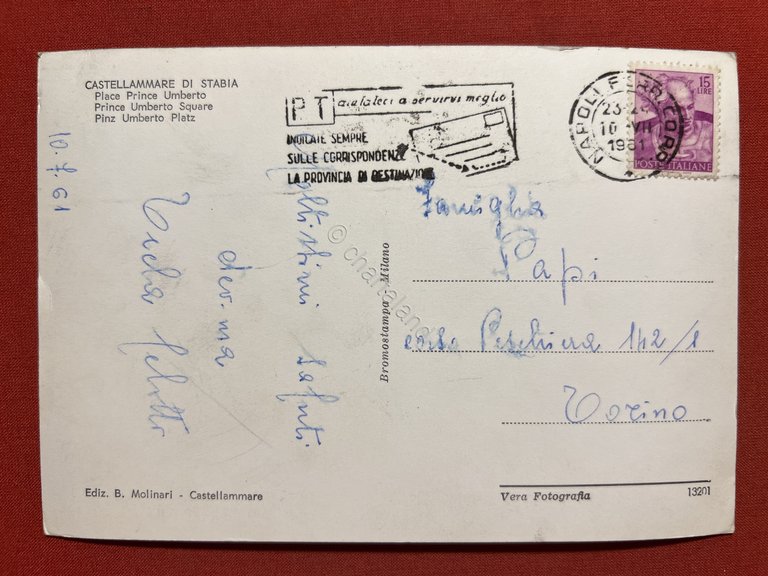 CASTELLAMMARE DI STABIA
Place Prince Umberto
Prince Umberto Square
Pinz Umberto Platz
PT aiutateci a servirvi meglio
INDICATE SEMPRE
SULLE CORRISPONDENZE
LA PROVINCIA DI DESTINAZIONE
NAPOLI FERR. CORR.
10 VII
1961
15
LIRE
POSTE ITALIANE
10.7.61
Moltissimi saluti
dev.ma
Famiglia
Papi
corso Peschiera 142/1
Torino
Bromostampa - Milano
Ediz. B. Molinari - Castellammare
Vera Fotografia
13201